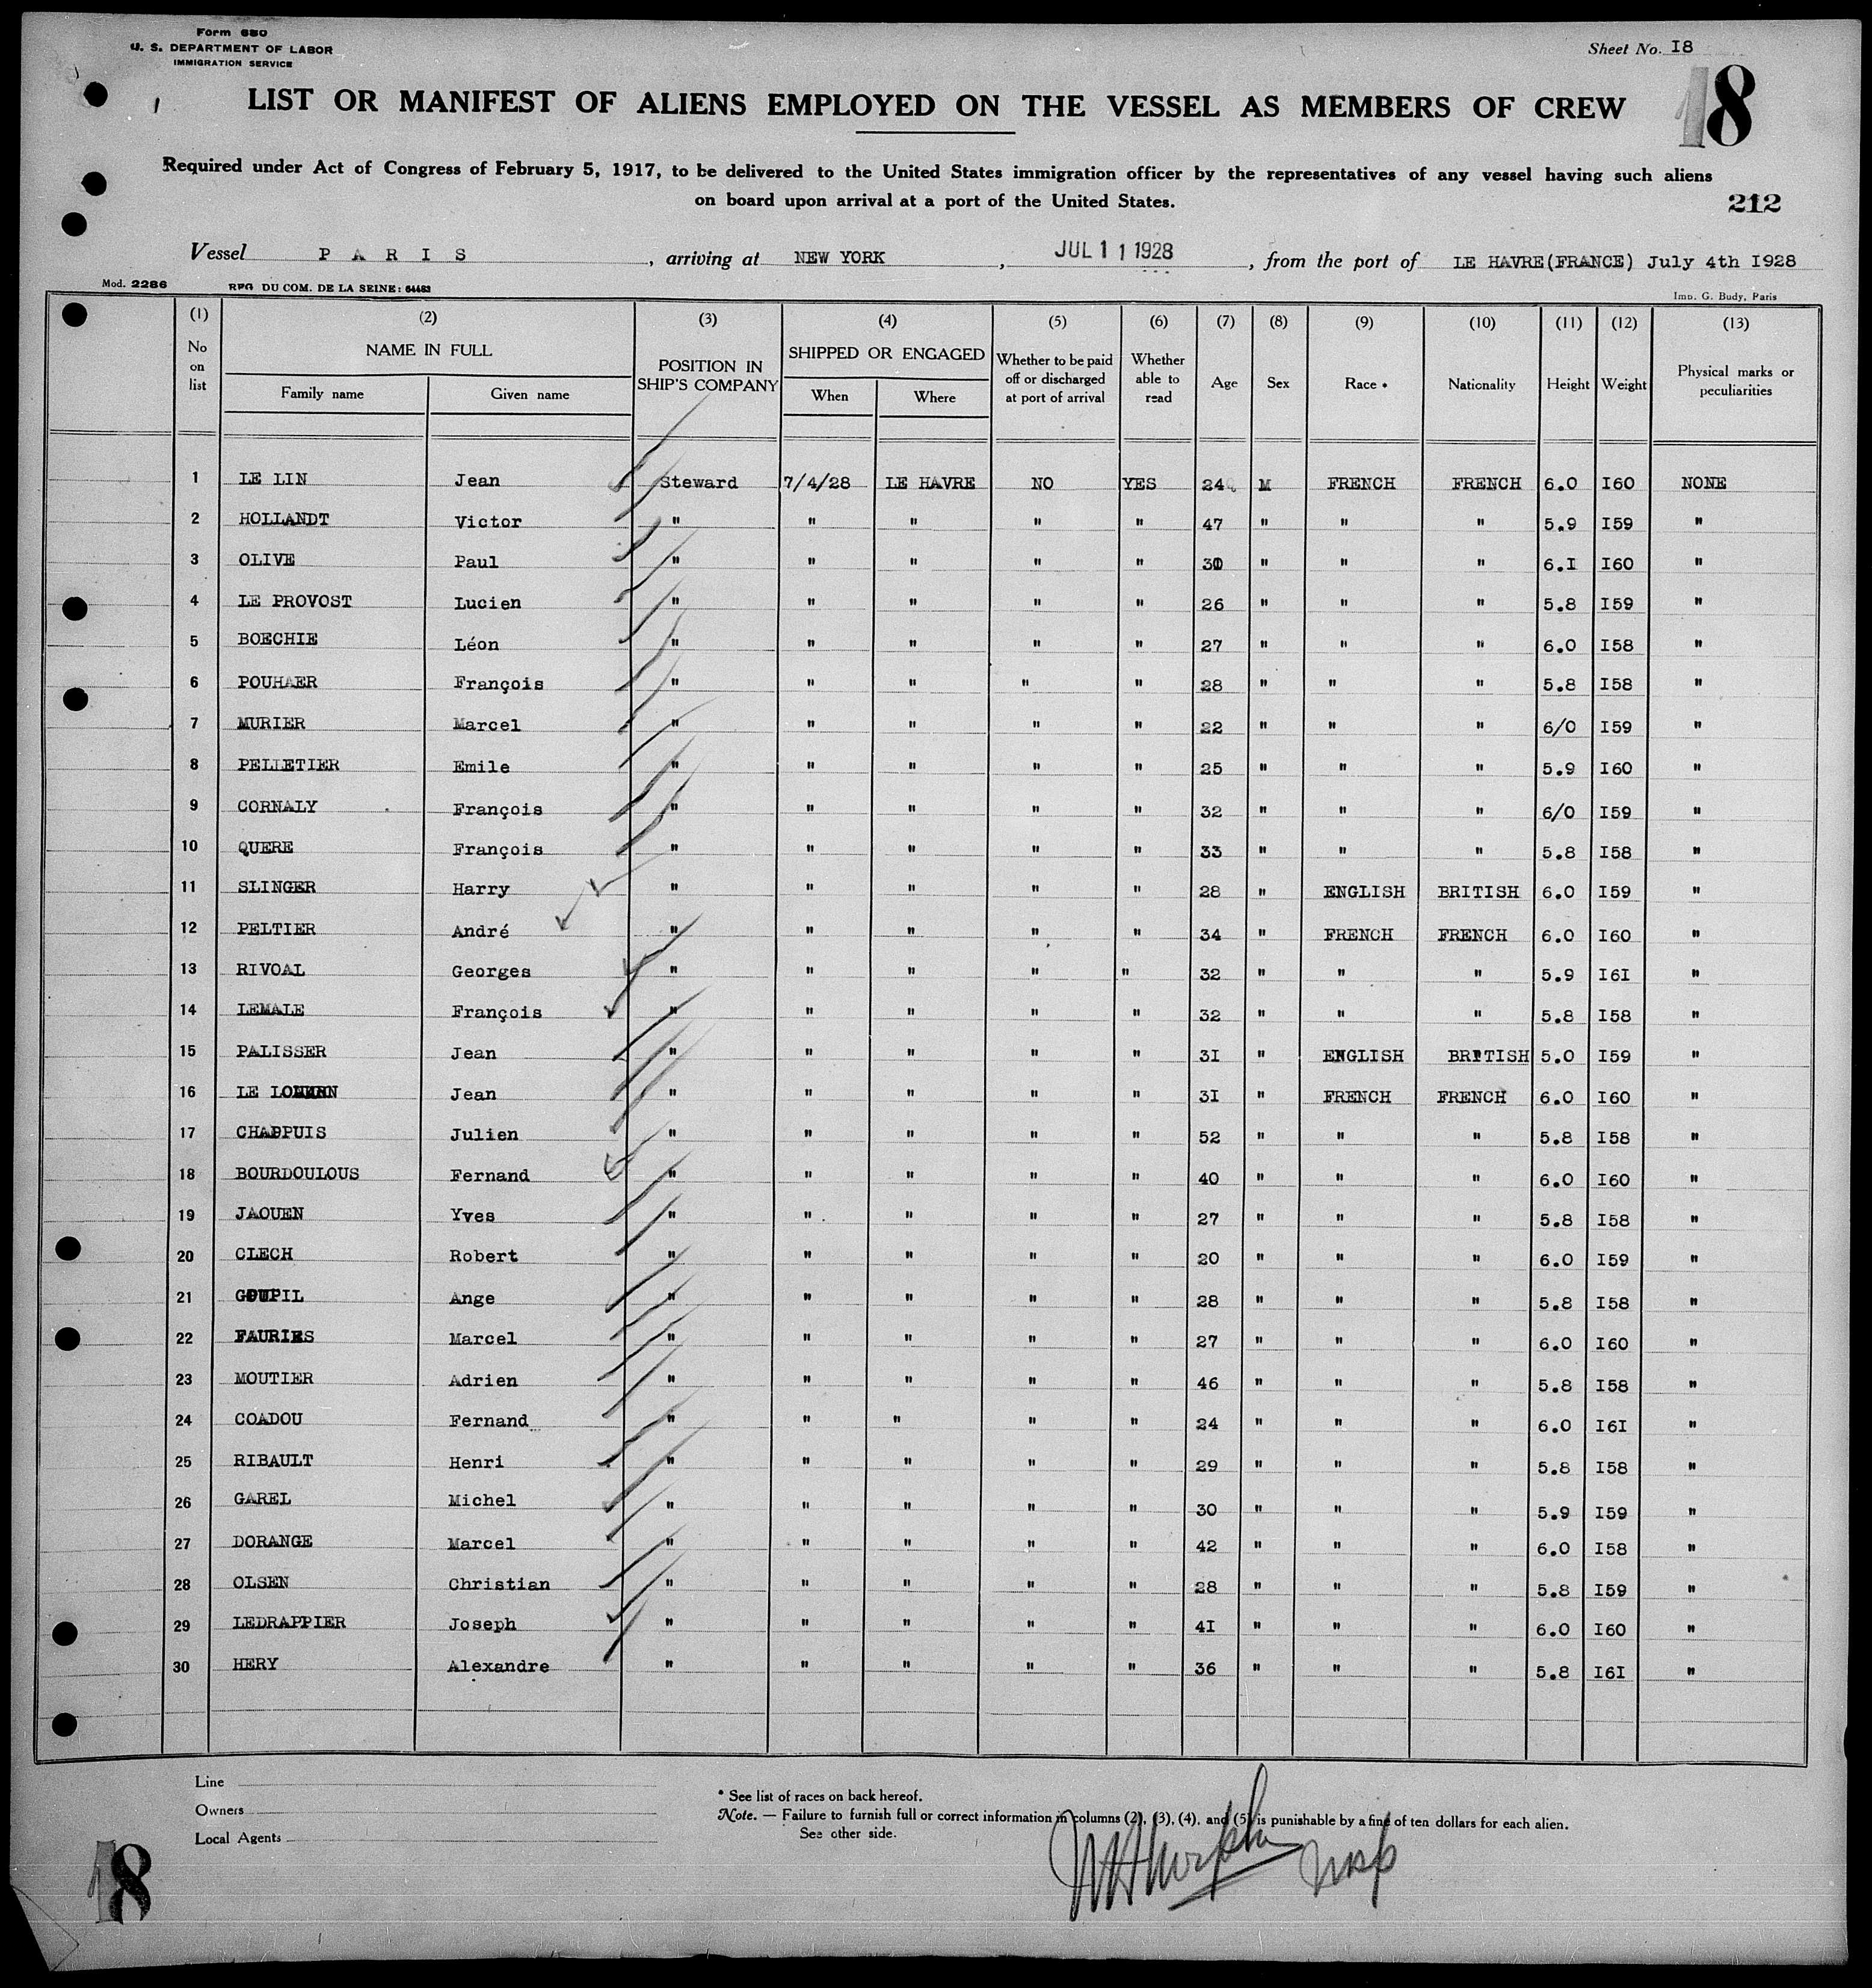 Form 680
U. S. DEPARTMENT OF LABOR
IMMIGRATION SERVICE
Sheet No. I8
18
LIST OR MANIFEST OF ALIENS EMPLOYED ON THE VESSEL AS MEMBERS OF CREW
Required under Act of Congress of February 5, 1917, to be delivered to the United States immigration officer by the representatives of any vessel having such aliens
on board upon arrival at a port of the United States.
212
Vessel P A R I S , arriving at NEW YORK , JUL 11 1928 , from the port of LE HAVRE(FRANCE) July 4th I928
Mod. 2286 RPG DU COM. DE LA SEINE: 64483 Imp. G. Budy, Paris
(1) (2) (3) (4) (5) (6) (7) (8) (9) (10) (11) (12) (13)
No on list NAME IN FULL Family name Given name POSITION IN SHIP'S COMPANY SHIPPED OR ENGAGED When Where Whether to be paid off or discharged at port of arrival Whether able to read Age Sex Race * Nationality Height Weight Physical marks or peculiarities
1 LE LIN Jean Steward 7/4/28 LE HAVRE NO YES 24 M FRENCH FRENCH 6.0 I60 NONE
2 HOLLANDT Victor " " " " " 47 " " " 5.9 I59 "
3 OLIVE Paul " " " " " 30 " " " 6.I I60 "
4 LE PROVOST Lucien " " " " " 26 " " " 5.8 I59 "
5 BOECHIE Léon " " " " " 27 " " " 6.0 I58 "
6 POUHAER François " " " " " 28 " " " 5.8 I58 "
7 MURIER Marcel " " " " " 22 " " " 6/0 I59 "
8 PELLETIER Emile " " " " " 25 " " " 5.9 I60 "
9 CORNALY François " " " " " 32 " " " 6/0 I59 "
10 QUERE François " " " " " 33 " " " 5.8 I58 "
11 SLINGER Harry " " " " " 28 " ENGLISH BRITISH 6.0 I59 "
12 PELTIER André " " " " " 34 " FRENCH FRENCH 6.0 I60 "
13 RIVOAL Georges " " " " " 32 " " " 5.9 I6I "
14 LEMALE François " " " " " 32 " " " 5.8 I58 "
15 PALISSER Jean " " " " " 3I " ENGLISH BRITISH 5.0 I59 "
16 LE Jean " " " " " 3I " FRENCH FRENCH 6.0 I60 "
17 CHAPPUIS Julien " " " " " 52 " " " 5.8 I58 "
18 BOURDOULOUS Fernand " " " " " 40 " " " 6.0 I60 "
19 JAOUEN Yves " " " " " 27 " " " 5.8 I58 "
20 CLECH Robert " " " " " 20 " " " 6.0 I59 "
21 GOUPIL Ange " " " " " 28 " " " 5.8 I58 "
22 FAURIES Marcel " " " " " 27 " " " 6.0 I60 "
23 MOUTIER Adrien " " " " " 46 " " " 5.8 I58 "
24 COADOU Fernand " " " " " 24 " " " 6.0 I6I "
25 RIBAULT Henri " " " " " 29 " " " 5.8 I58 "
26 GAREL Michel " " " " " 30 " " " 5.9 I59 "
27 DORANGE Marcel " " " " " 42 " " " 6.0 I58 "
28 OLSEN Christian " " " " " 28 " " " 5.8 I59 "
29 LEDRAPPIER Joseph " " " " " 4I " " " 6.0 I60 "
30 HERY Alexandre " " " " " 36 " " " 5.8 I6I "
Line
Owners
Local Agents
* See list of races on back hereof.
Note. — Failure to furnish full or correct information in columns (2), (3), (4), and (5) is punishable by a fine of ten dollars for each alien.
See other side.
18